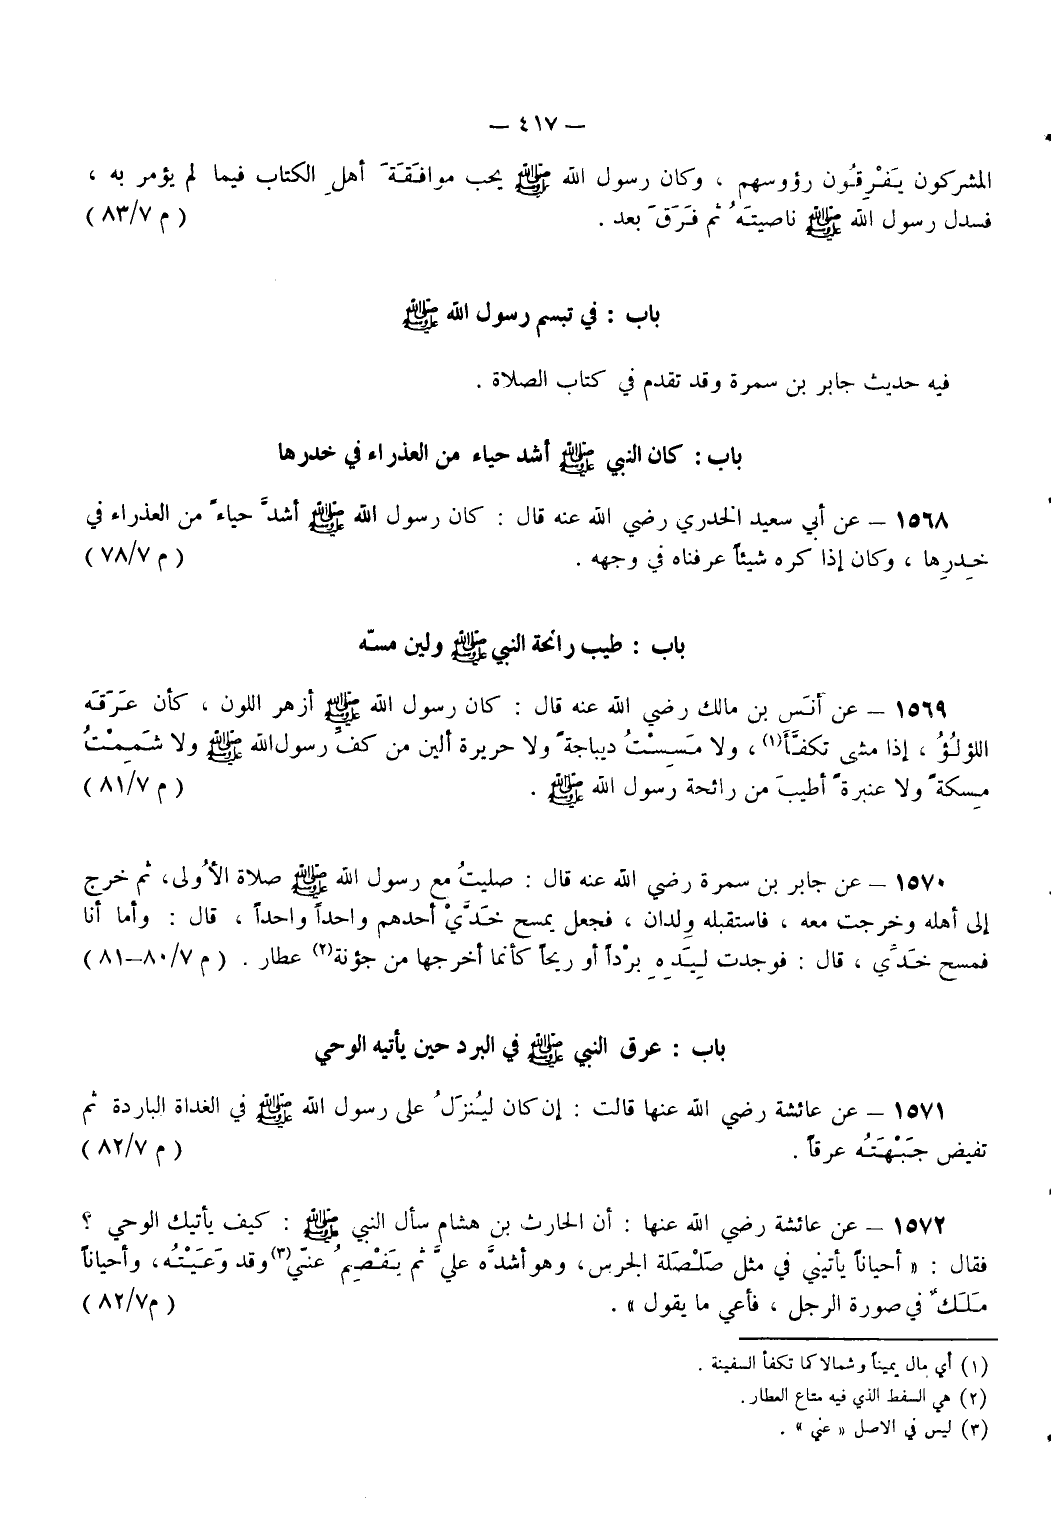 – ٤١٧ –
المشركون يَفْرِقُون رؤوسهم ، وكان رسول الله ﷺ يحب موافَقَةَ أهلِ الكتاب فيما لم يؤمر به ،
فسدل رسول الله ﷺ ناصيتَهُ ثم فَرَقَ بعد . ( م ٨٣/٧ )
باب : في تبسم رسول الله ﷺ
فيه حديث جابر بن سمرة وقد تقدم في كتاب الصلاة .
باب : كان النبي ﷺ أشد حياء من العذراء في خدرها
١٥٦٨ – عن أبي سعيد الخدري رضي الله عنه قال : كان رسول الله ﷺ أشدَّ حياءً من العذراء في
خِدرِها ، وكان إذا كره شيئاً عرفناه في وجهه . ( م ٧٨/٧ )
باب : طيب رائحة النبي ﷺ ولين مسّه
١٥٦٩ – عن أنَس بن مالك رضي الله عنه قال : كان رسول الله ﷺ أزهر اللون ، كأن عَرَقَه
اللؤلُؤُ ، إذا مشى تكفَّأَ(١) ، ولا مَسِسْتُ ديباجةً ولا حريرة ألين من كفِّ رسول الله ﷺ ولا شَمِمْتُ
مِسكةً ولا عنبرةً أطيبَ من رائحة رسول الله ﷺ . ( م ٨١/٧ )
١٥٧٠ – عن جابر بن سمرة رضي الله عنه قال : صليتُ مع رسول الله ﷺ صلاة الأُولى، ثم خرج
إلى أهله وخرجت معه ، فاستقبله وِلدان ، فجعل يمسح خَدَّيْ أحدهم واحداً واحداً ، قال : وأما أنا
فمسح خَدِّي ، قال : فوجدت لِيَدِهِ بَرْداً أو ريحاً كأنما أخرجها من جؤنة(٢) عطار . ( م ٨٠/٧–٨١ )
باب : عرق النبي ﷺ في البرد حين يأتيه الوحي
١٥٧١ – عن عائشة رضي الله عنها قالت : إن كان ليُنزَلُ على رسول الله ﷺ في الغداة الباردة ثم
تفيض جَبْهَتُه عرقاً . ( م ٨٢/٧ )
١٥٧٢ – عن عائشة رضي الله عنها : أن الحارث بن هشام سأل النبي ﷺ : كيف يأتيك الوحي ؟
فقال : « أحياناً يأتيني في مثل صَلْصَلة الجرس، وهو أشدَّه عليَّ ثم يَفْصِمُ عنّي(٣) وقد وَعَيْتُه، وأحياناً
مَلَكٌ في صورة الرجل ، فأعي ما يقول » . ( م٨٢/٧ )
(١) أي مال يميناً وشمالا كما تكفأ السفينة .
(٢) هي السفط الذي فيه متاع العطار .
(٣) ليس في الاصل « عني » .